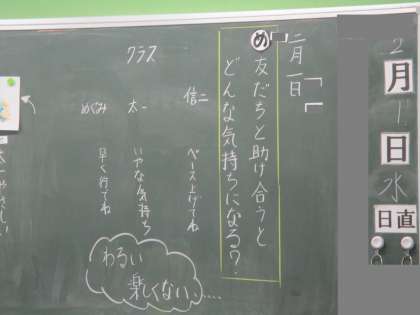 2
月
1
日
水
日直
二月一日
め
友だちと助け合うと
どんな気持ちになる？
クラス
信二
ペース上げてね
太一
いやな気持ち
めぐみ
早く行てね
わるい
楽しくない、....